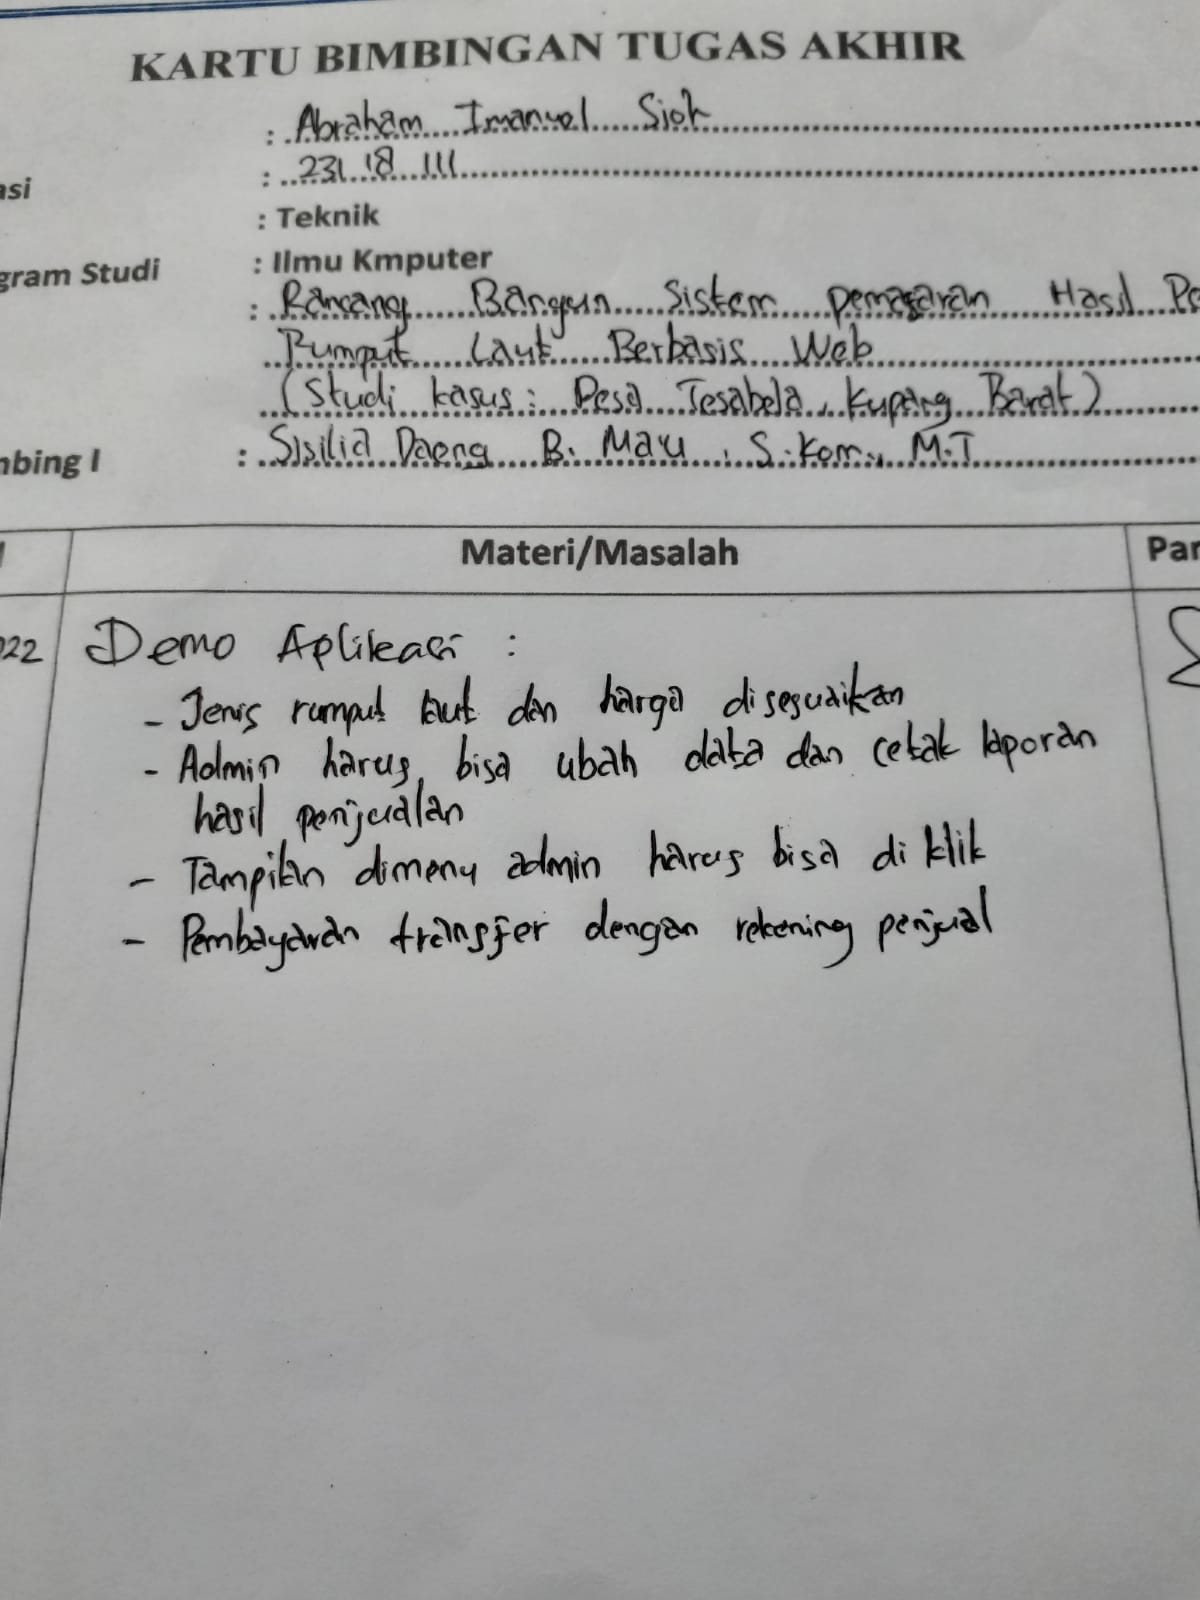 KARTU BIMBINGAN TUGAS AKHIR
: Abraham Imanuel Sioh
asi : 231 18 111
: Teknik
gram Studi : Ilmu Kmputer
: Rancang Bangun Sistem pemasaran Hasil Pa
Rumput Laut Berbasis Web
(Studi kasus : Desa Tesabela, Kupang Barat)
mbing I : Sisilia Daeng B. Mau, S.Kom., M.T
Materi/Masalah Par
022 Demo Aplikasi :
- Jenis rumput laut dan harga disesuaikan
- Admin harus bisa ubah data dan cetak laporan
hasil penjualan
- Tampilan dimenu admin harus bisa di klik
- Pembayaran transfer dengan rekening penjual